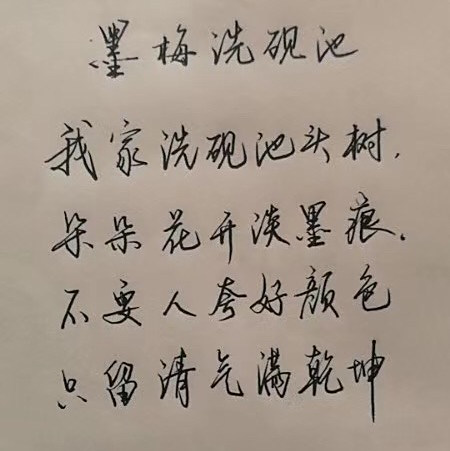 墨梅洗砚池
我家洗砚池头树,
朵朵花开淡墨痕.
不要人夸好颜色
只留清气满乾坤